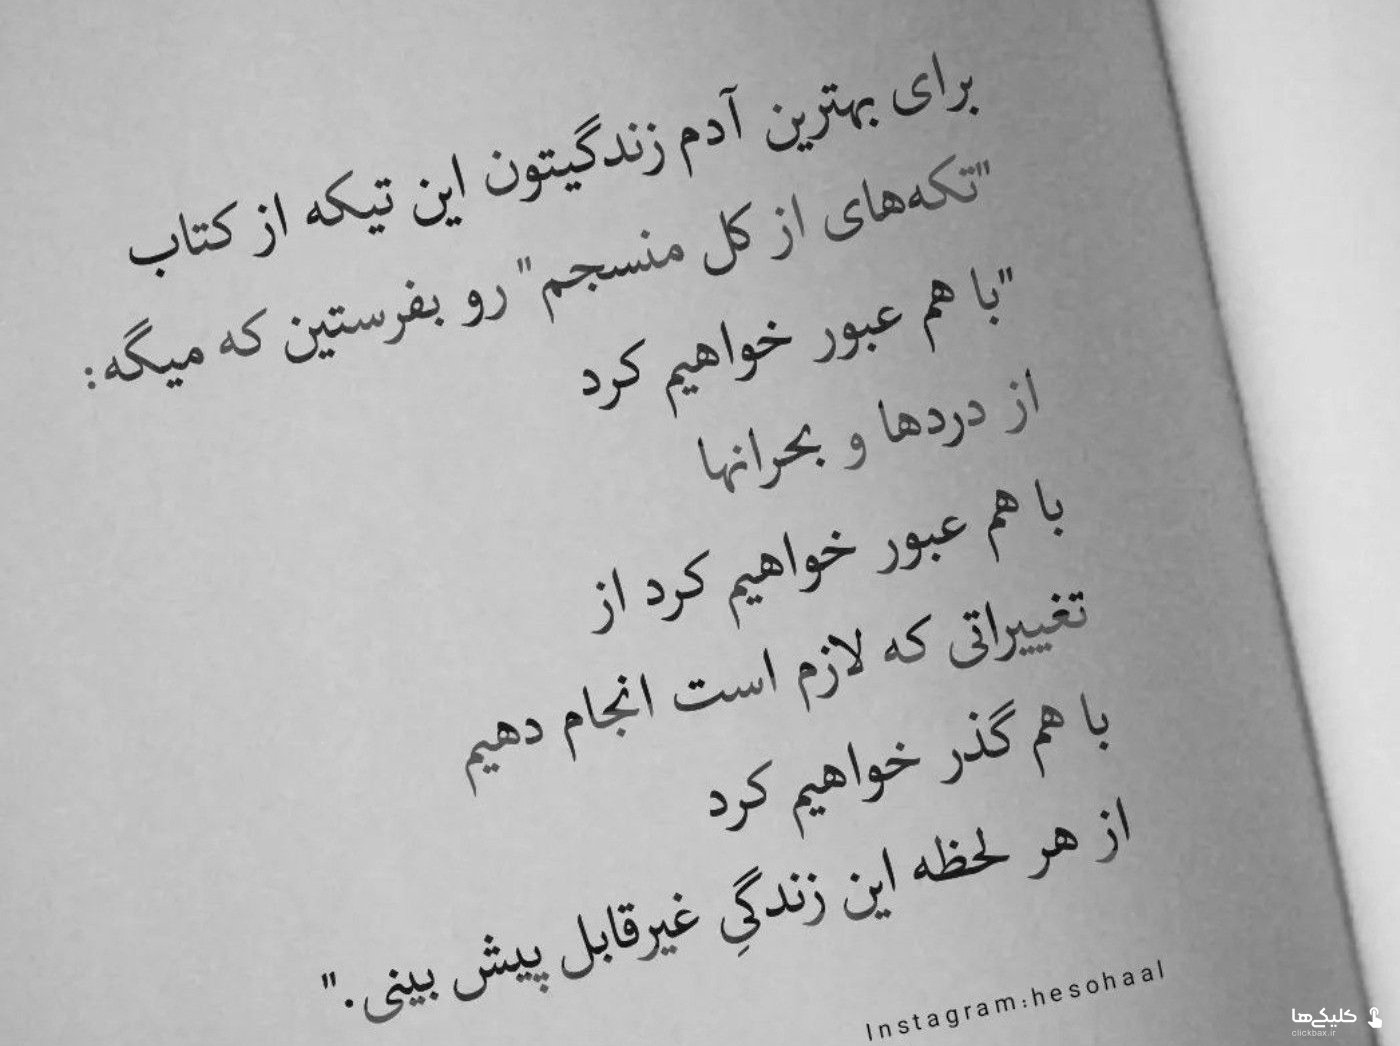 برای بهترین آدم زندگیتون این تیکه از کتاب
"تکه‌های از کل منسجم" رو بفرستین که میگه:
"با هم عبور خواهیم کرد
از دردها و بحرانها
با هم عبور خواهیم کرد از
تغییراتی که لازم است انجام دهیم
با هم گذر خواهیم کرد
از هر لحظه این زندگیِ غیرقابل پیش بینی."
Instagram:hesohaal
کلیکی‌ها
clickbax.ir